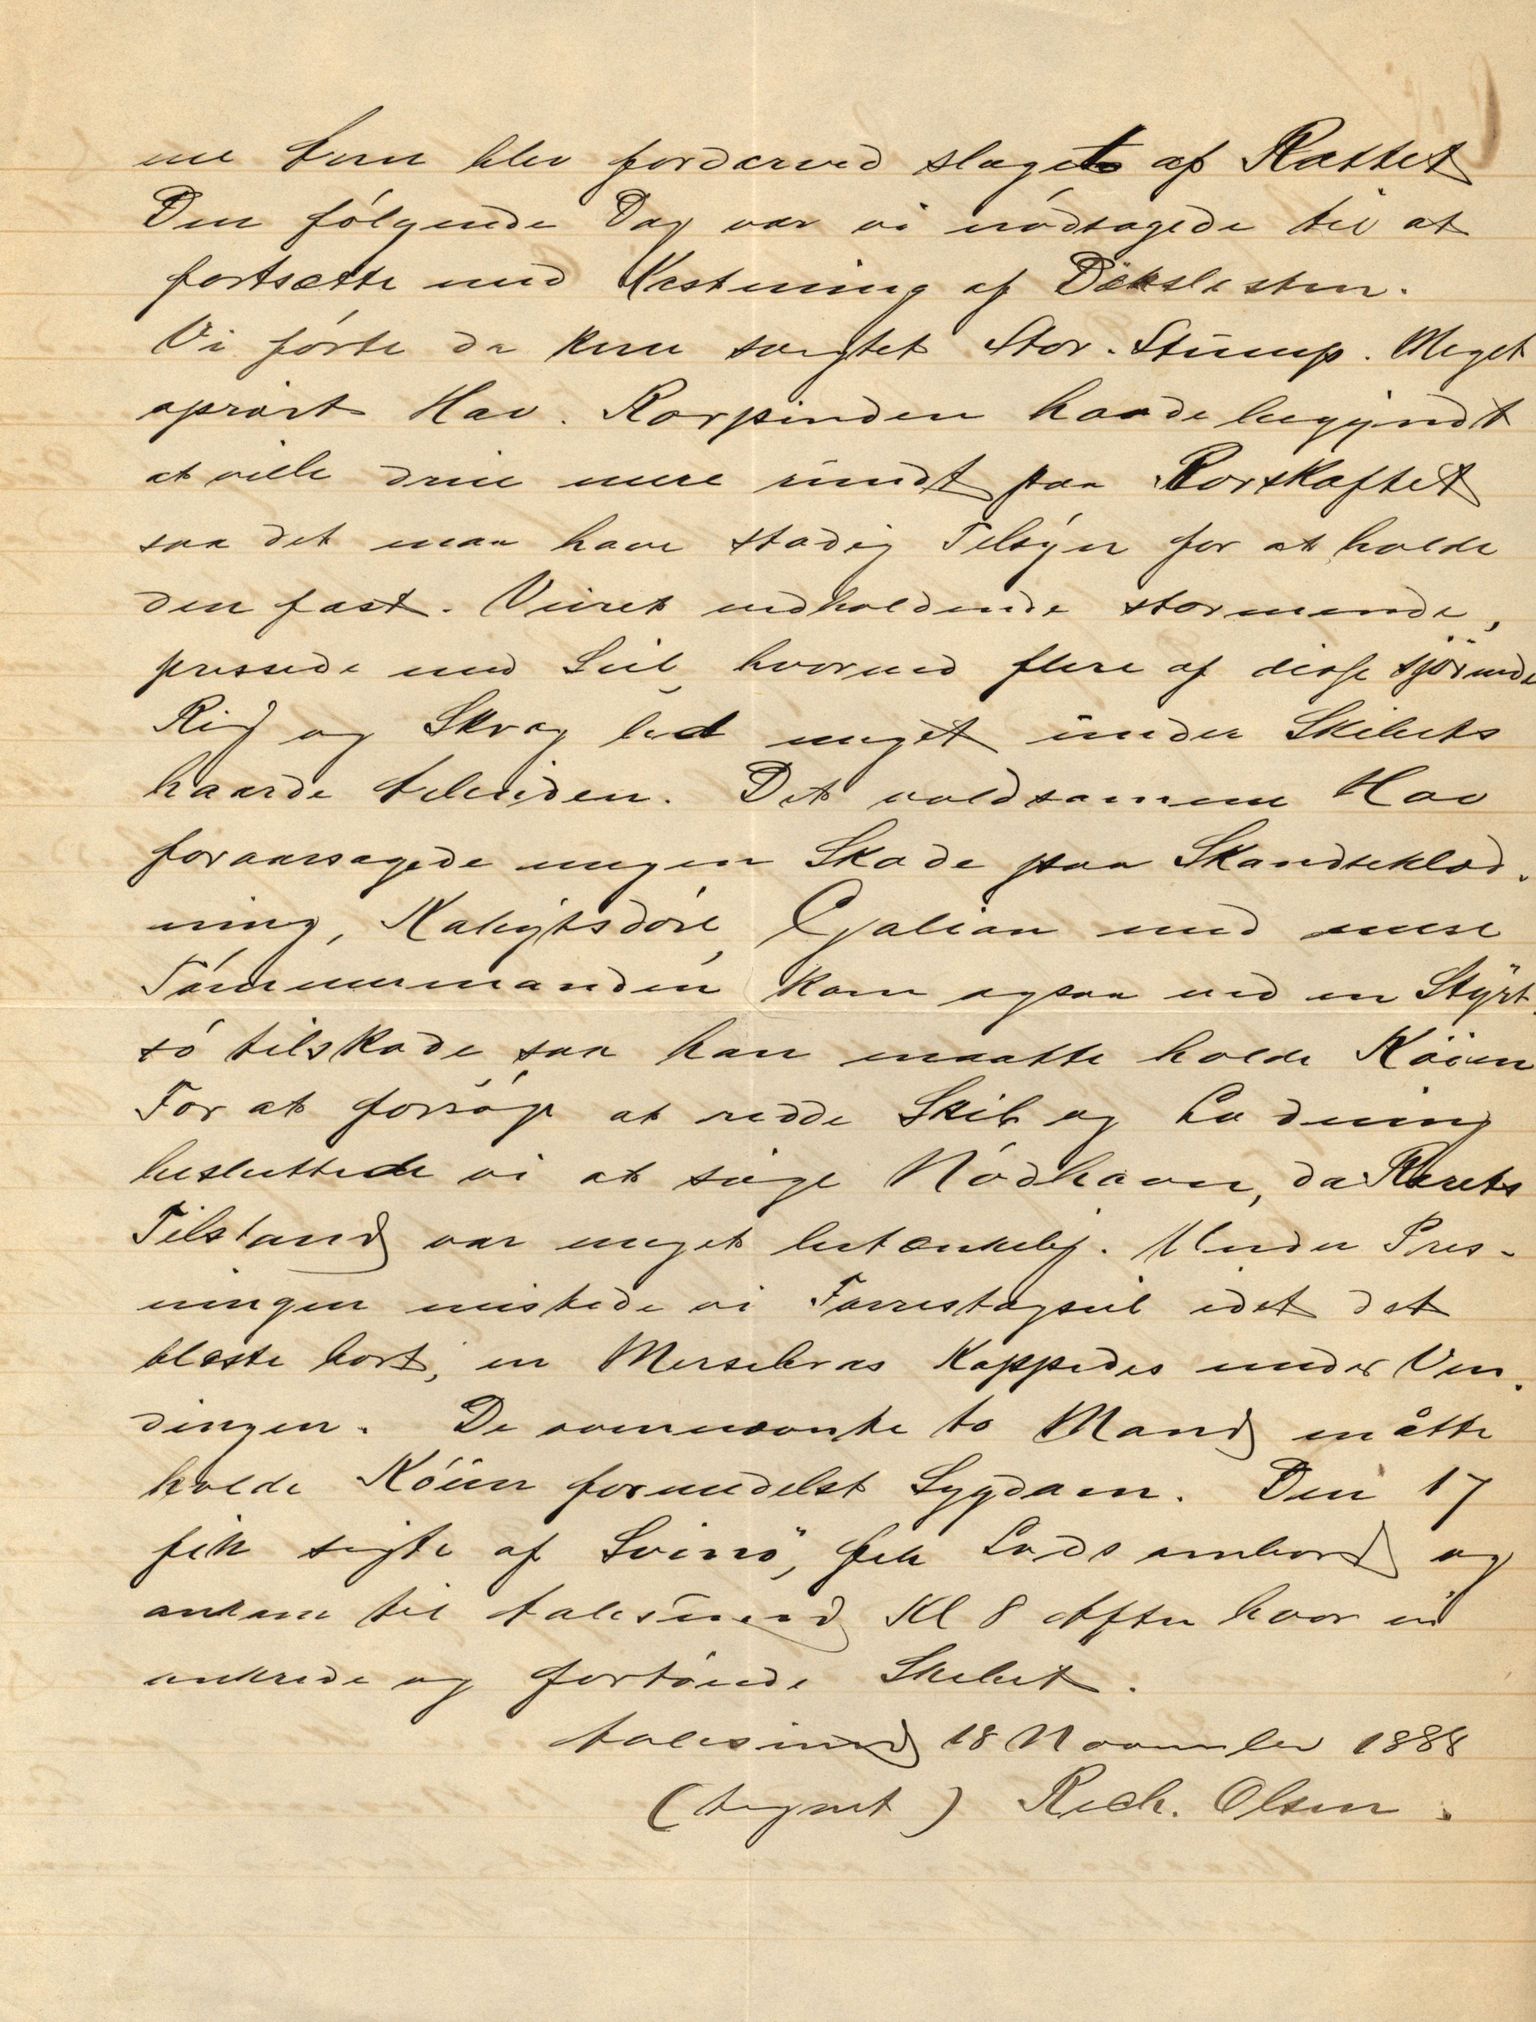 ene Arm blev fordærved slaget af Rattet
Den følgende Dag var vi nødsagede til at
fortsætte med Kastning af Dækslasten.
Vi førte da kun svigtet Stor-Stump. Meget
oprørt Hav. Rorpinden havde begyndt
at ville dreie mere rundt paa Rorskaftet
saa det maa have stadig Tilsyn for at holde
den fast. Veiret vedholdende stormende,
pressede med Seil, hvorved flere af disse sprængtes
Rig og Skrog led meget under Skibets
haarde Arbeiden. Det voldsomme Hav
foraarsagede megen Skade paa Skandseklæd-
ning, Kahytsdøre, Galion med mere
Tømmermanden kom ogsaa ved en Styrt-
sø tilskade, saa han maatte holde Køien
For at forsøge at redde Skib og Ladning
besluttede vi at søge Nødhavn, da Rorets
Tilstand var meget betænkelig. Under Pres-
ningen mistede vi Forrestagseil idet det
blæste bort, en Mersebras kappedes under Ven-
dingen. De ovennævnte to Mand måtte
holde Køien formedelst Sygdom. Den 17
fik sigte af Svinö, fik Lods ombord og
ankom til Aalesund Kl 8 Aften hvor vi
ankrede og fortøiede Skibet.
Aalesund 18 November 1888
(tegnet) Rich. Olsen.